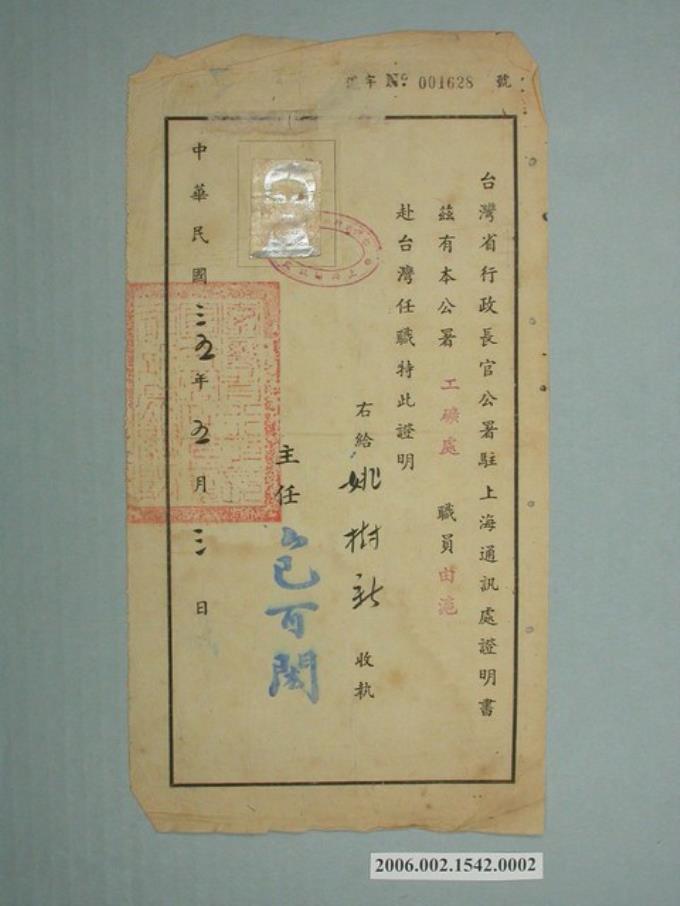 字 No. 001628 號
台灣省行政長官公署駐上海通訊處證明書
茲有本公署 工礦處 職員由滬
赴台灣任職特此證明
右給 姚樹新 收執
主任 包可閎
中華民國三五年五月三日
2006.002.1542.0002